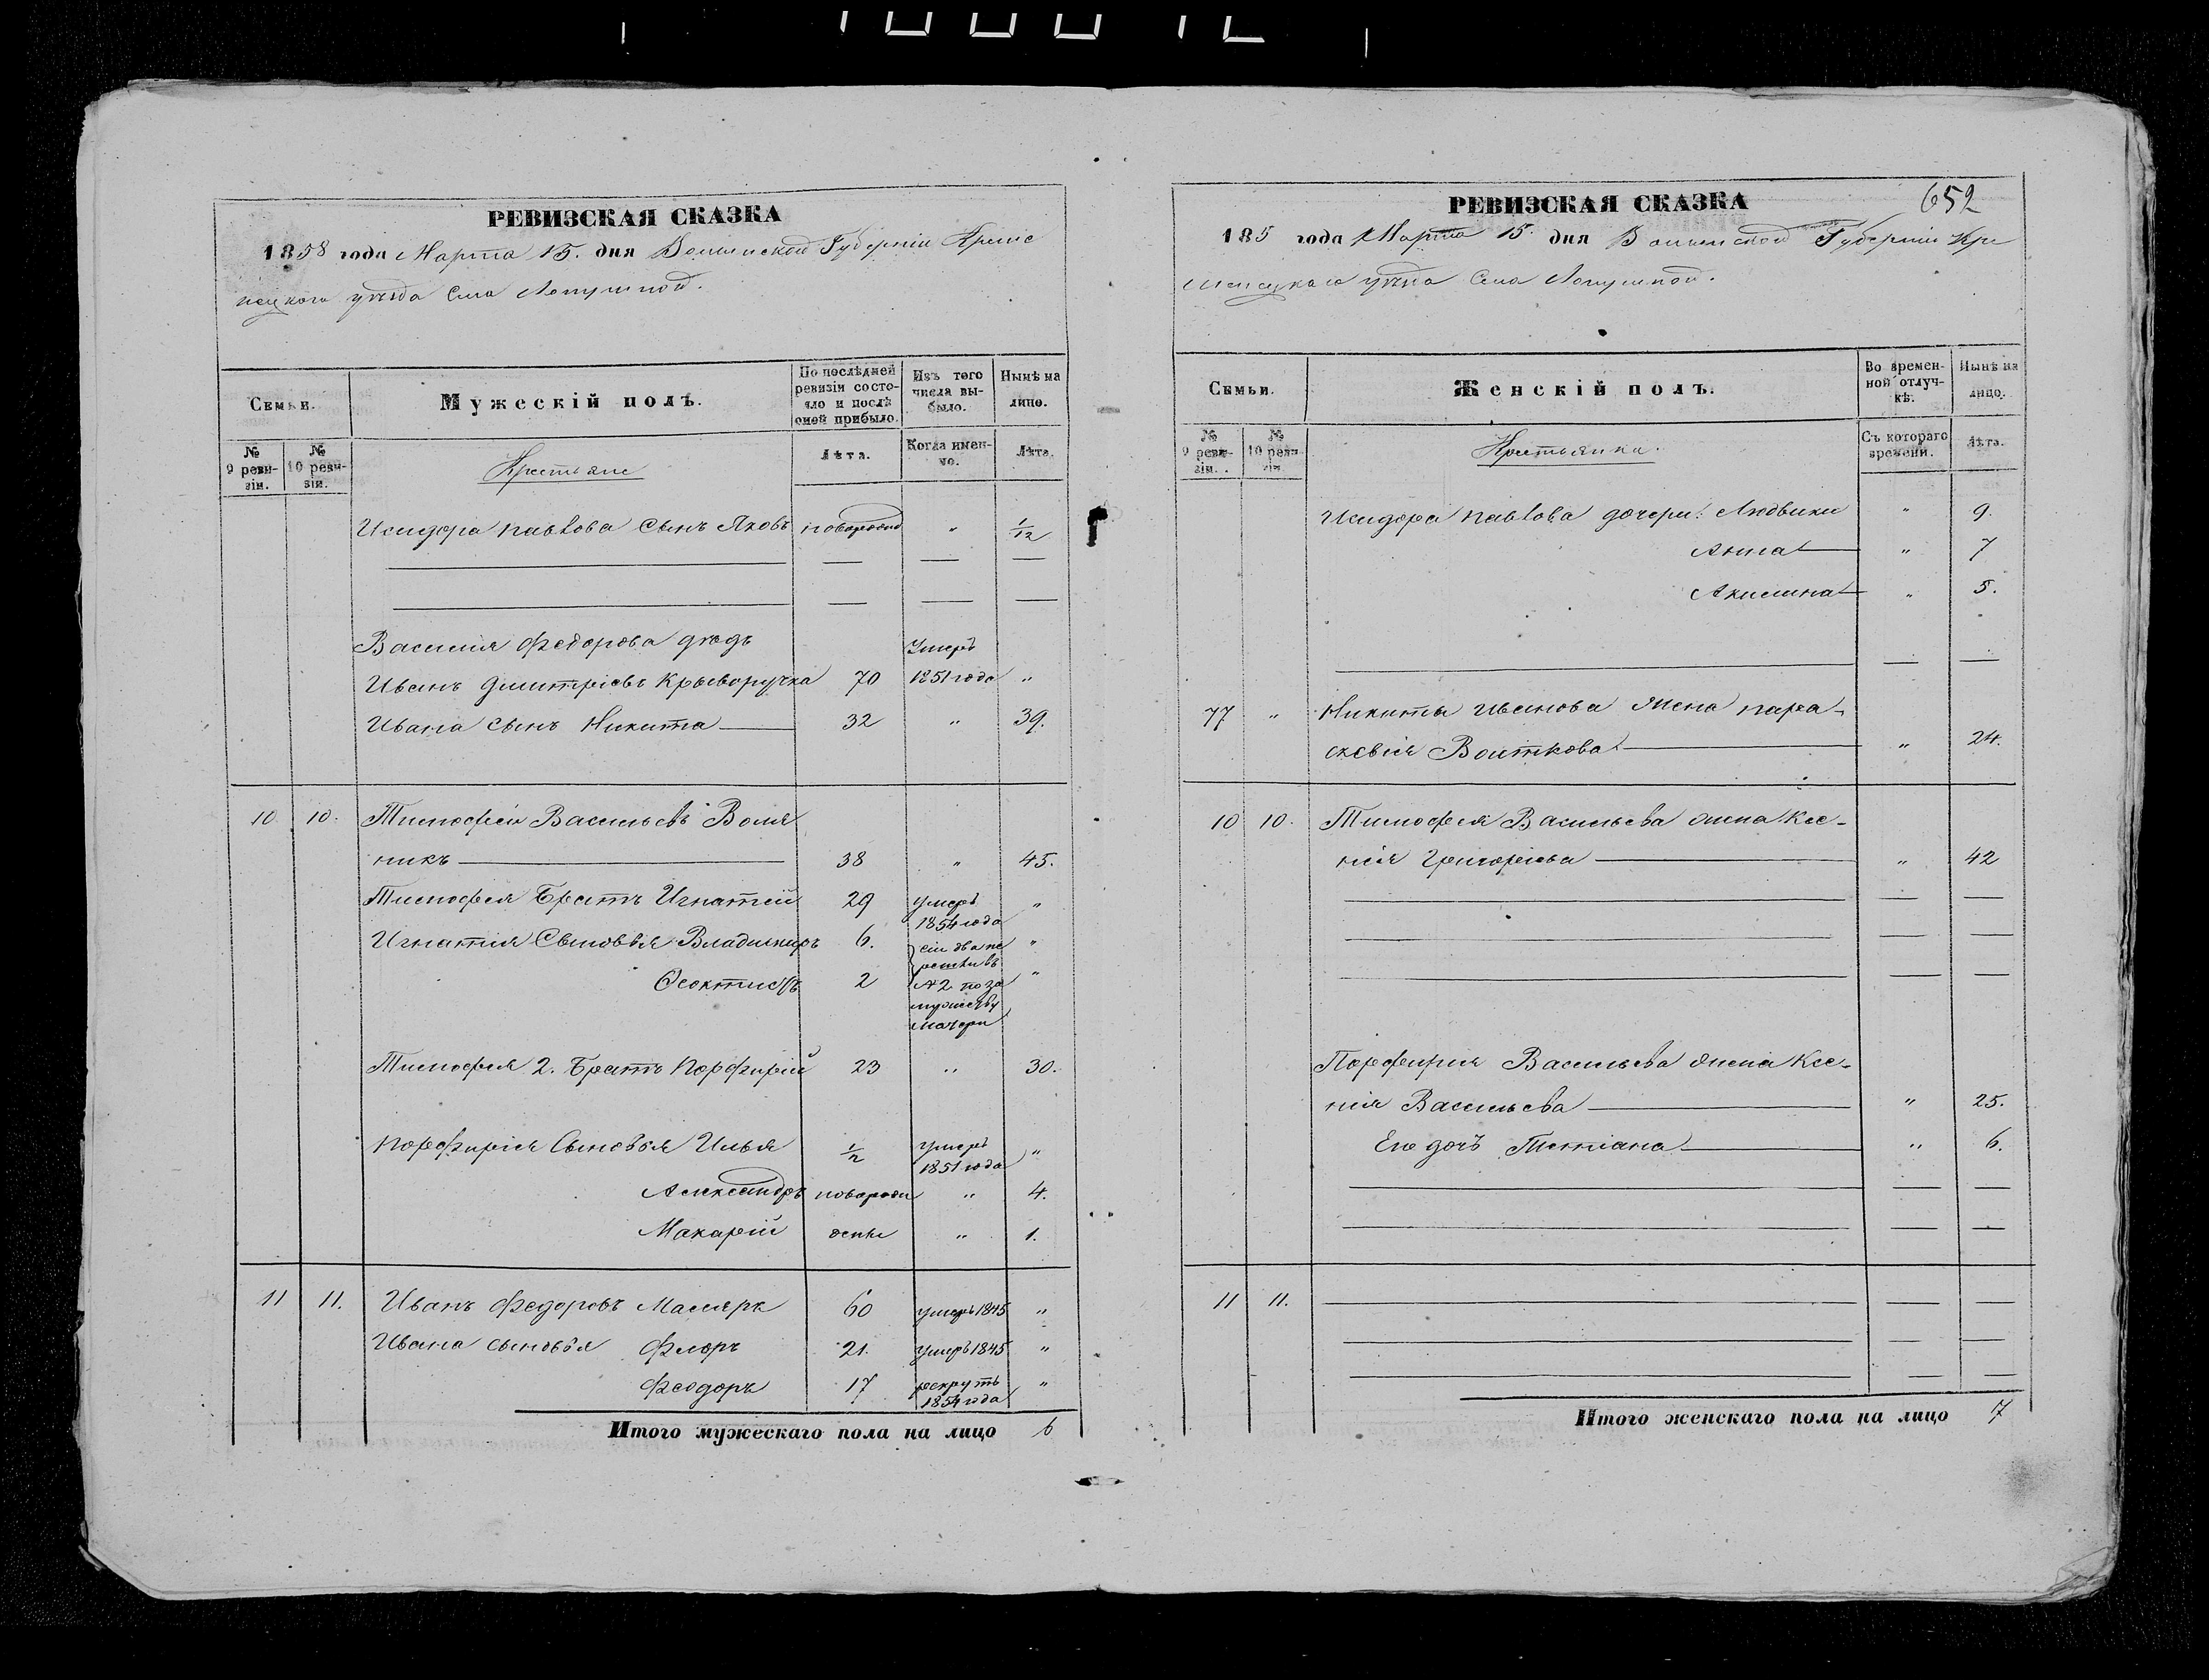 РЕВИЗСКАЯ СКАЗКА
1858 года Марта 15. дня Волынской Губерніи Креме
нецкого уѣзда Села Лопушной.
Семьи.
Мужескій полъ.
По послѣдней ревизіи состояло и послѣ оной прибыло.
Изъ того числа выбыло.
Нынѣ на лицо.
№ 9 ревизіи.
№ 10 ревизіи.
Крестьяне
Лѣта.
Когда именно.
Лѣта.
Исидора Павлова Сынъ Яковъ новорожд " 1/12
Василія Федорова дядь
Умеръ
Иванъ Дмитріевъ Крыворучка 70 1851 года "
Ивана сынъ Никита 32 " 39.
10. 10. Тимофей Васильевъ
никъ 38 " 45.
Тимофея Братъ Игнатій 29 умеръ 1854 года "
Игнатія Сыновья Владимиръ 6. "
Феоктистъ 2 "
сіи два пе
въ
№2 по за
мужеству
матери
Тимофея 2. Братъ Порфирій 23 " 30.
Порфирія Сыновья Илья 1/2 умеръ 1851 года "
Александръ новорожд " 4.
Макарій " 1.
11 11. Иванъ Федоровъ Маляръ 60 умеръ 1845 "
Ивана сыновья Флоръ 21. умеръ 1845 "
Феодоръ 17 рекрутъ 1854 года "
Итого мужескаго пола на лицо 6
РЕВИЗСКАЯ СКАЗКА
652
185 года Марта 15. дня Волынской Губерніи Кре
менецкаго уѣзда Села Лопушной.
Семьи.
Женскій полъ.
Во временной отлучкѣ.
Нынѣ на лицо.
№ 9 ревизіи.
№ 10 ревизіи
Крестьянки.
Съ котораго времени.
Лѣта.
Исидора Павлова дочери: Людвики " 9.
Анна " 7
Акилина " 5.
77 " Никиты Иванова Жена Параскевія Войткова " 24.
10 10. Тимофея Васильева жена Ксе-
нія Григорьева " 42
Порфирія Васильева жена Ксе-
нія Васильева " 25.
Его дочъ Тетіана " 6.
11 11.
Итого женскаго пола на лицо 7